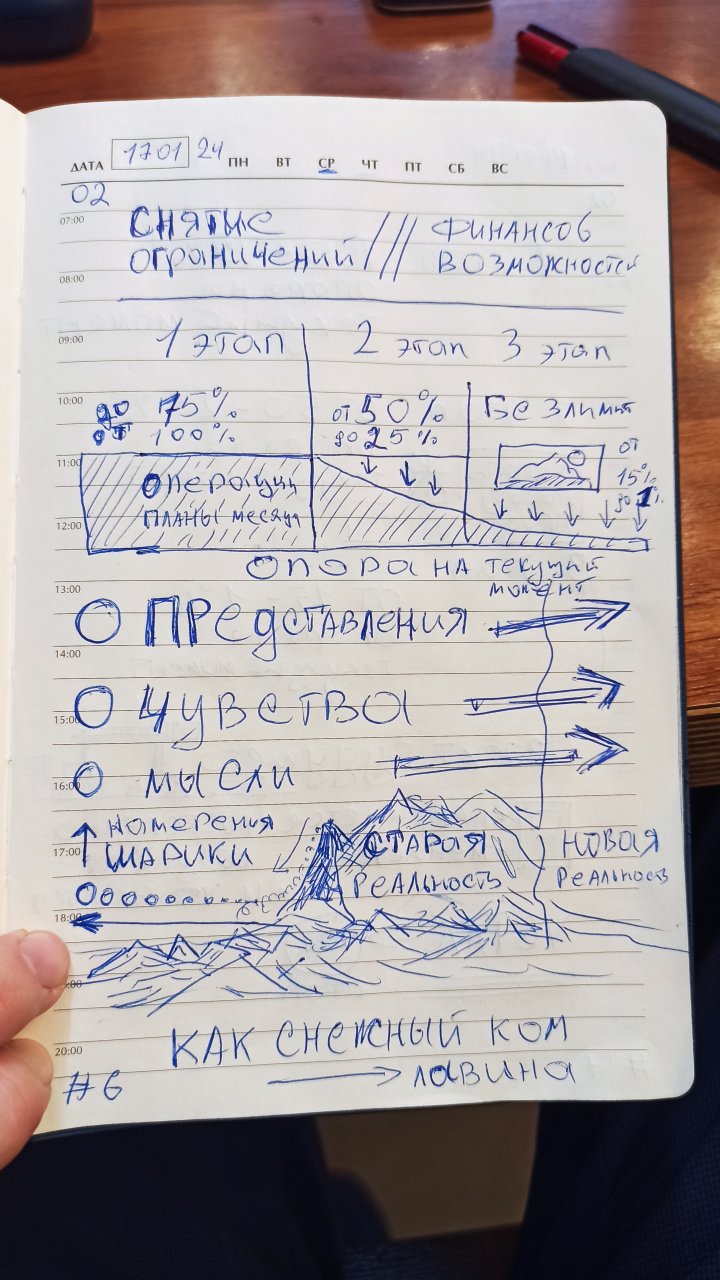 ДАТА 17 01 24 ПН ВТ СР ЧТ ПТ СБ ВС
02
07:00
СНЯТИЕ /// ФИНАНСОВ
ограничений ВОЗМОЖНОСТЕЙ
08:00
09:00
1 этап 2 этап 3 этап
10:00
до 75% от 50% БЕЗлимит
от 100% до 25%
от
15%
до 1%
11:00
Операции
планы месяца
12:00
Опора на текущий
момент
13:00
ПРедставления
14:00
15:00
ЧУВСТВА
16:00
мысли
намерения
17:00
ШАРИКИ
СТАРАЯ НОВАЯ
РЕАЛЬНОСТЬ РЕАЛЬНОСТЬ
18:00
20:00
КАК СНЕЖНЫЙ КОМ
ЛАВИНА
#6